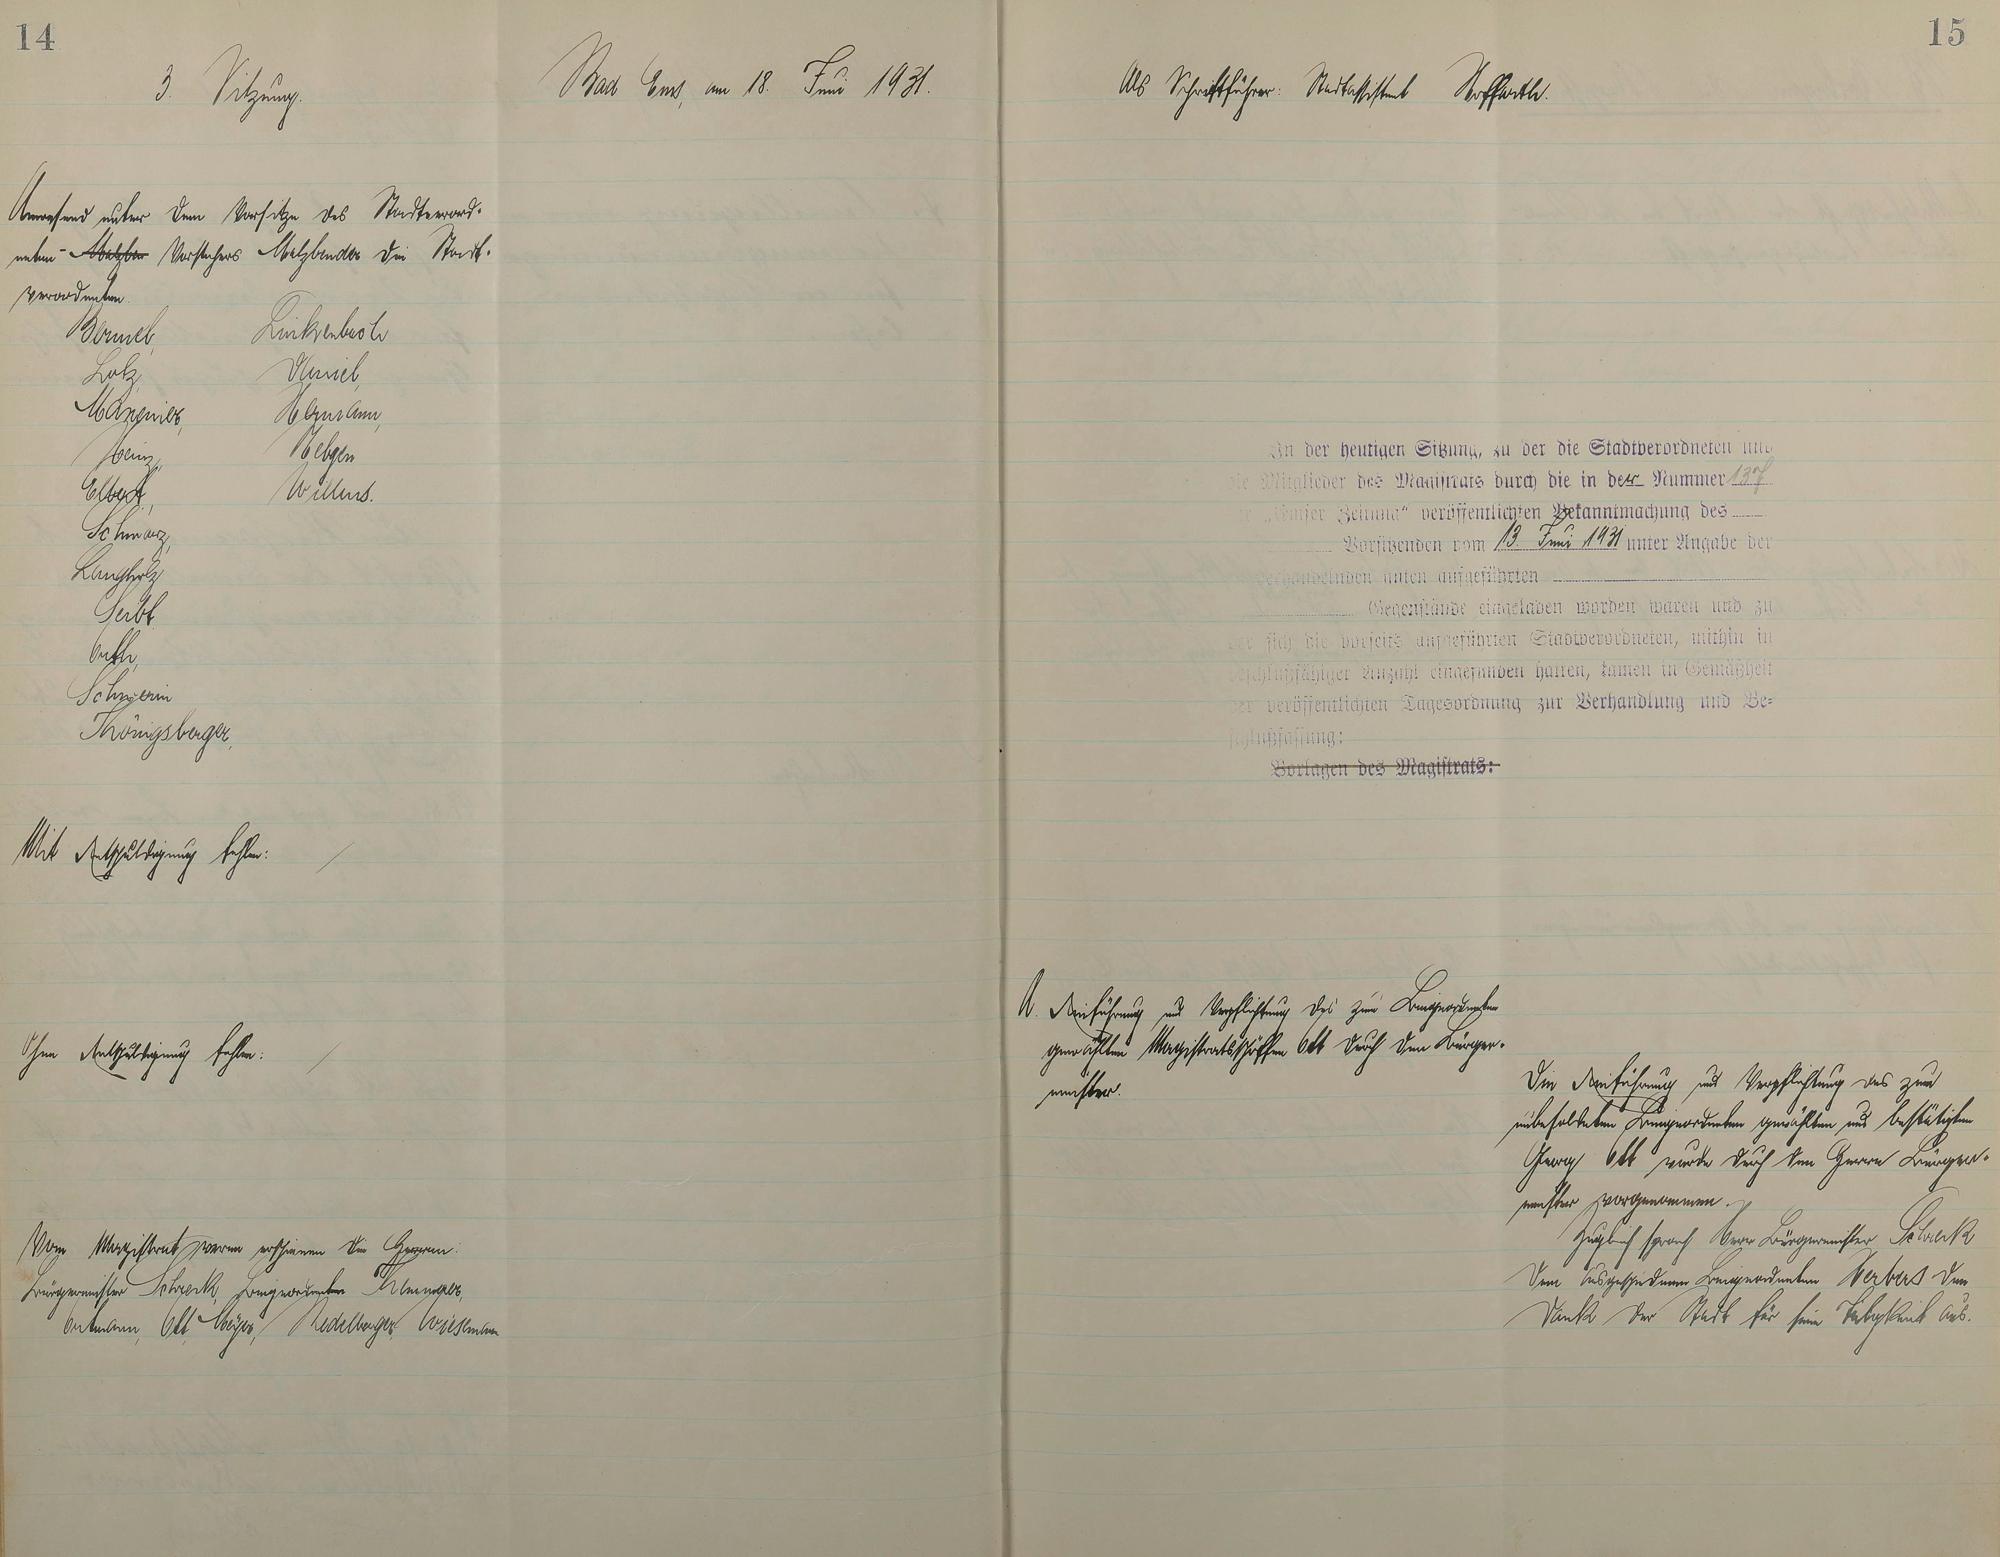 14
3. Sitzung.
Bad Ems, am 18. Juni 1931.
Anwesend unter dem Vorsitze des Stadtverord-
neten- Vorstehers Melzbender die Stadt-
verordneten
Bermel, Linkenbach
Lotz, Daniel,
Hermann,
Heinz, Nebgen
Elbert, Willems.
Schwarz,
Langholz
Seibt
Orth,
Schwerin
Königsberger,
Mit Entschuldigung fehlen: /
Ohne Entschuldigung fehlen: /
Vom Magistrat waren erschienen die Herren:
Bürgermeister Schreck, Beigeordneter
Ortmann, Ott, Meyer, Wiesemann
15
Als Schriftführer: Stadtassistent
In der heutigen Sitzung, zu der die Stadtverordneten und
die Mitglieder des Magistrats durch die in der Nummer 137
der „Emser Zeitung“ veröffentlichten Bekanntmachung des
Vorsitzenden vom 13. Juni 1931 unter Angabe der
verhandelnden unten aufgeführten
Gegenstände eingeladen worden waren und zu
der sich die vorseits aufgeführten Stadtverordneten, mithin in
beschlußfähiger Anzahl eingefunden hatten, kamen in Gemäßheit
der veröffentlichten Tagesordnung zur Verhandlung und Be-
schlußfassung:
Vorlagen des Magistrats:
A. Einführung und Verpflichtung des zum Beigeordneten
gewählten Magistratsschöffen Ott durch den Bürger-
meister.
Die Einführung und Verpflichtung des zum
unbesoldeten Beigeordneten gewählten und bestätigten
Georg Ott wurde durch den Herrn Bürger-
meister vorgenommen.
Zugleich sprach Herr Bürgermeister Schreck
dem ausgeschiedenen Beigeordneten Herbers den
Dank der Stadt für seine Tätigkeit aus.